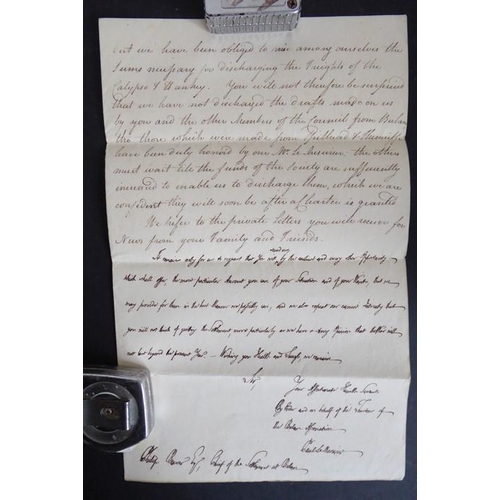 but we have been obliged to raise among ourselves the
Sums necessary for discharging the Freights of the
Calypso & Hankey. You will not therefore be surprised
that we have not discharged the drafts made on us
by you and the other Members of the Council from Bulam
the those which were made from
have been duly honored by our Mr. the others
must wait till the funds of the Society are sufficiently
increased to enable us to discharge them, which we are
confident they will soon be after a Charter is granted
We refer to the private letters you will receive for
News from your Family and Friends.
It remains only for us to request that you will by the and every other Opportunity
which shall offer, the more particular Account you can of your Situation and of your Wants, that we may
provide for them in the best Manner we possibly can, and we also repeat our earnest that
you will not think of quitting the Settlement more particularly as we have a Opinion that
not last beyond the present Year. Wishing you Health and we remain
Sir,
Your Humble
By Order and on behalf of the Trustees of
the Bulam Association
Paul Le Mesurier
Philip Beaver Esq, Chief of the Settlement at Bulam